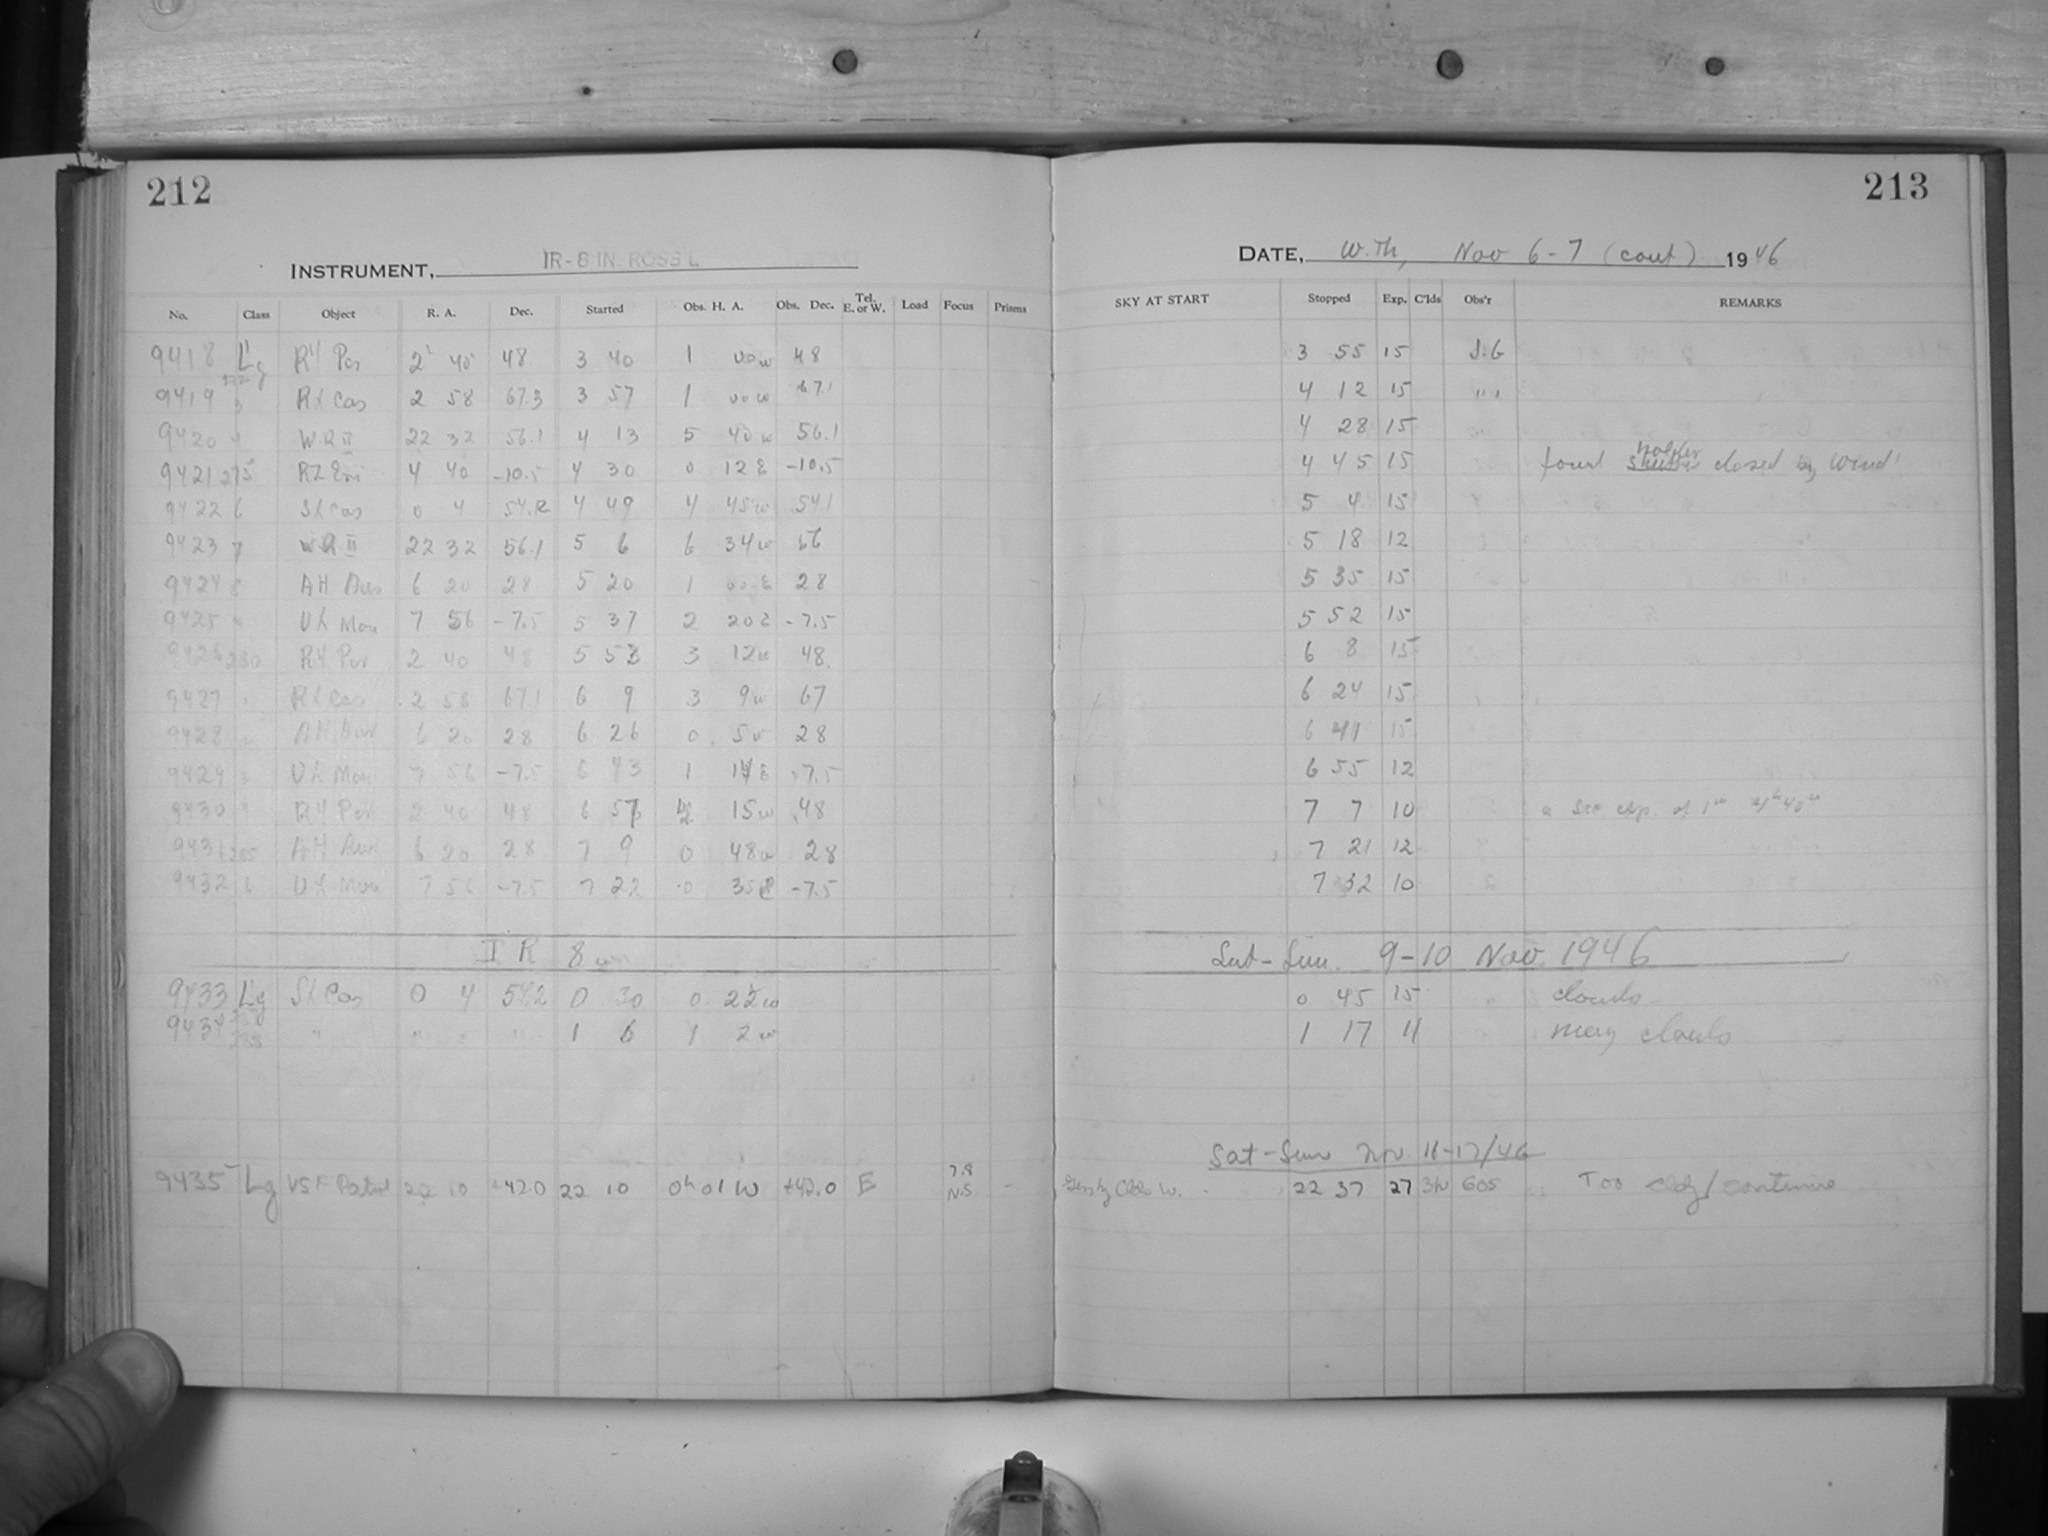 212
INSTRUMENT, IR-8 IN. ROSS L
No. Class Object R. A. Dec. Started Obs. H. A. Obs. Dec. Tel. E. or W. Load Focus Prisms
9418 Lg RY Per 2 40 48 3 40 1 00w 48
9419 RX Cas 2 58 67.3 3 57 1 00w 67.1
9420 WR II 22 32 56.1 4 13 5 40w 56.1
9421 275 RZ Eri 4 40 -10.5 4 30 0 12E -10.5
9422 6 SX Cas 0 4 54.2 4 49 4 45w 54.1
9423 7 WR II 22 32 56.1 5 6 6 34w 56
9424 8 AH Aur 6 20 28 5 20 1 00E 28
9425 UX Mon 7 56 -7.5 5 37 2 20E -7.5
9426 280 RY Per 2 40 48 5 53 3 12w 48
9427 RX Cas 2 58 67.1 6 9 3 9w 67
9428 AH Aur 6 20 28 6 26 0 5w 28
9429 UX Mon 7 56 -7.5 6 43 1 14E -7.5
9430 RY Per 2 40 48 6 57 4 15w 48
9431 285 AH Aur 6 20 28 7 9 0 48w 28
9432 6 UX Mon 7 56 -7.5 7 22 0 35E -7.5
IR 8
9433 Lg SX Cas 0 4 54.2 0 30 0 22w
9434 " " " " 1 6 1 2w
9435 Lg VSF Patrol 22 10 +42.0 22 10 0h 01 W +42.0 E 7.8 N.S –
213
DATE, W. Th, Nov 6-7 (cont) 1946
SKY AT START Stopped Exp. C'lds Obs'r REMARKS
3 55 15 S.G
4 12 15 " "
4 28 15
4 45 15 found holder closed by wind!
5 4 15
5 18 12
5 35 15
5 52 15
6 8 15
6 24 15
6 41 15
6 55 12
7 7 10 exp. of 1m
7 21 12
7 32 10
Sat-Sun. 9-10 Nov. 1946
0 45 15 " clouds
1 17 11 many clouds
Sat-Sun Nov. 16-17/46
W. 22 37 27 605 Too cldy / continue